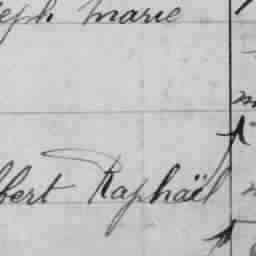 eph Marie
bert Raphaël